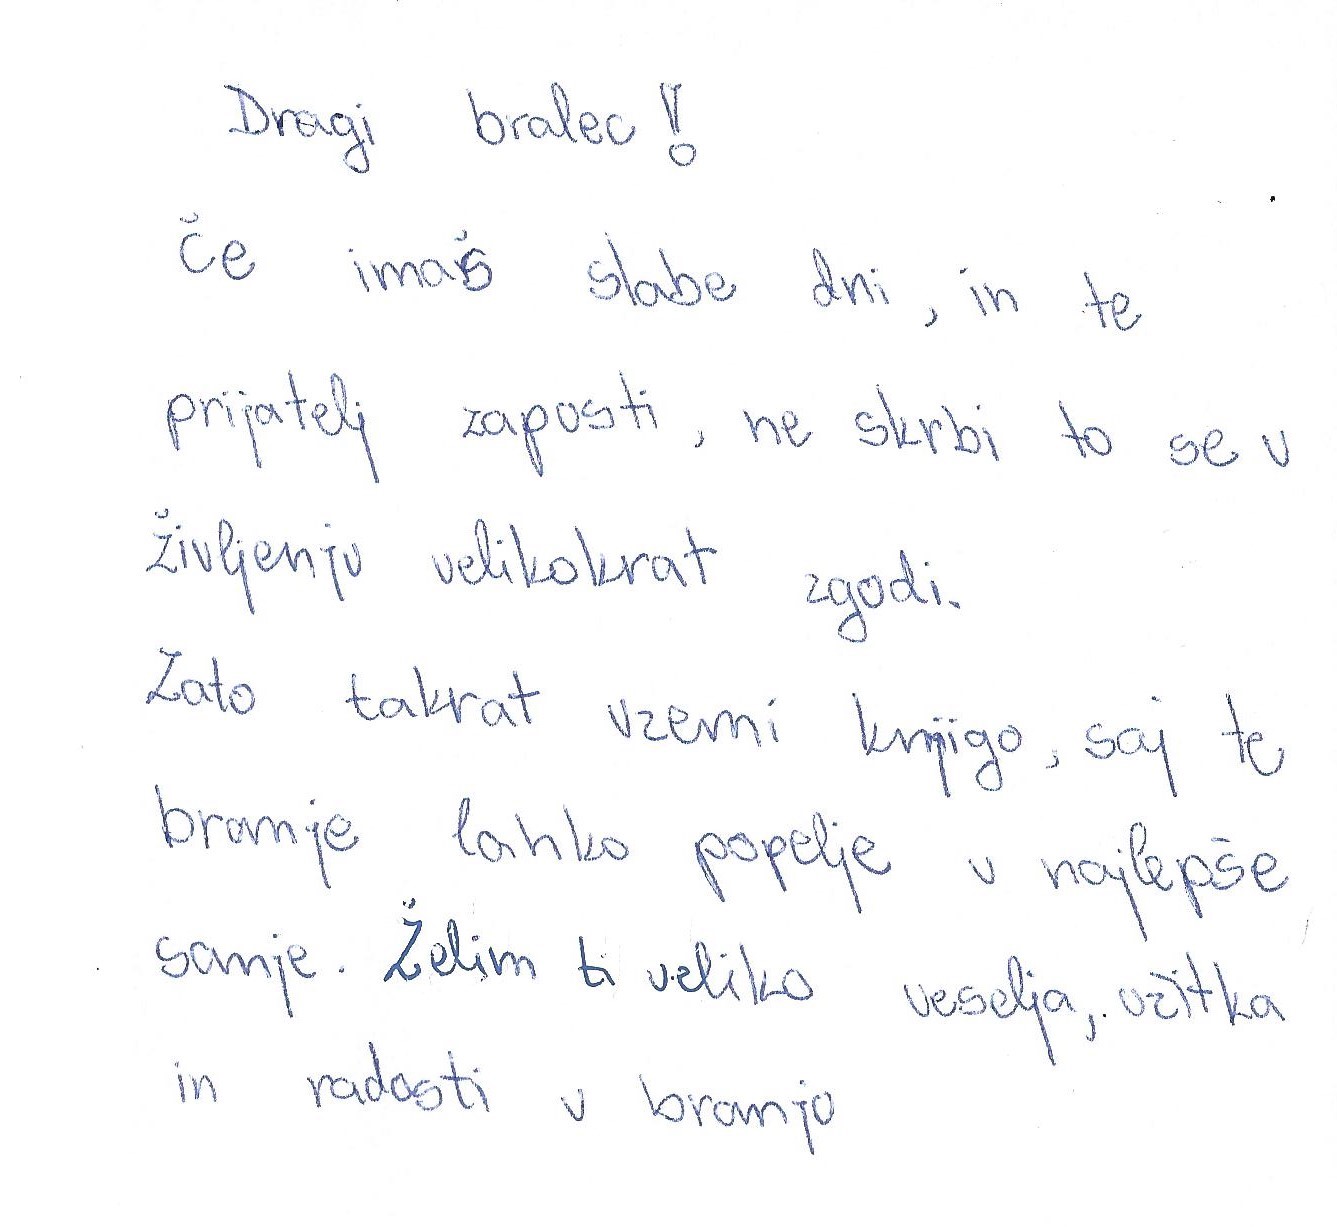 Dragi bralec!
Če imaš slabe dni, in te
prijatelj zapusti, ne skrbi to se v
življenju velikokrat zgodi.
Zato takrat vzemi knjigo, saj te
branje lahko popelje v najlepše
sanje. Želim ti veliko veselja, užitka
in radosti v branju